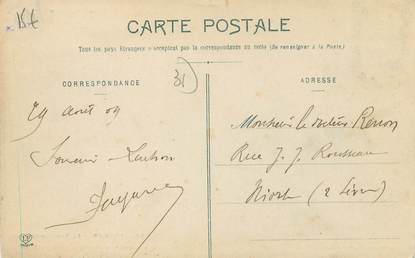 15 €
CARTE POSTALE
Tous les pays étrangers n'acceptent pas la correspondance au recto (Se renseigner à la Poste)
CORRESPONDANCE
31
ADRESSE
29 août 09
Monsieur le docteur Renon
Rue J. J. Rousseau
Niort (2 Sèvres)